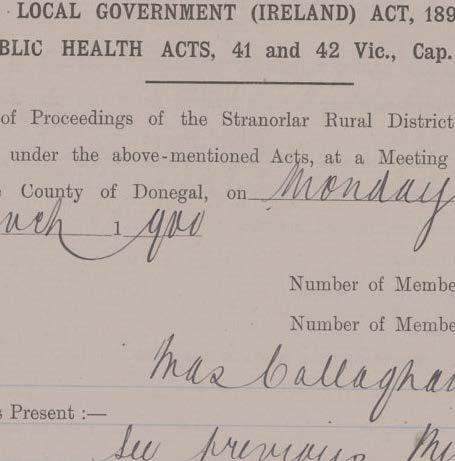 LOCAL GOVERNMENT (IRELAND) ACT, 189
BLIC HEALTH ACTS, 41 and 42 Vic., Cap.
of Proceedings of the Stranorlar Rural District
under the above-mentioned Acts, at a Meeting
County of Donegal, on Monday
rch 1900
Number of Membe
Number of Membe
Callaghan
s Present :—
See previous